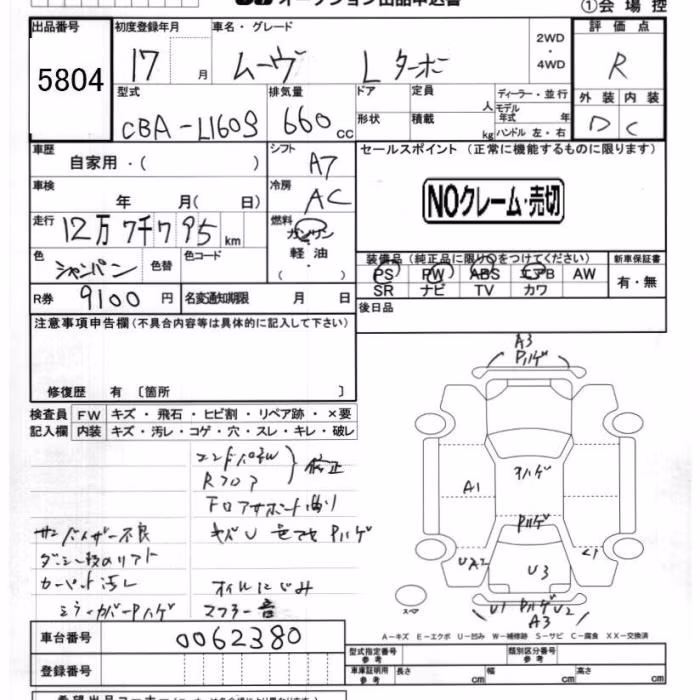 オークション出品申込書
①会場控
出品番号 5804
初度登録年月 17 月
車名・グレード ムーヴ Lターボ
2WD・4WD
評価点 R
型式 CBA-L160S
排気量 660 cc
ドア 形状
定員 人 積載 kg
ディーラー・並行 モデル年式 年 ハンドル 左・右
外装 内装
D C
車歴 自家用・( )
シフト A7
セールスポイント (正常に機能するものに限ります)
車検 年 月( 日)
冷房 AC
NOクレーム・売切
走行 12万7千795 km
燃料 ガソリン 軽油 ( ・ )
色 シャンパン 色替 色コード
装備品 (純正品に限り○をつけてください) 新車保証書
PS PW ABS エアB AW 有・無
SR ナビ TV カワ
R券 9100円 名変通知期限 月 日
後日品
注意事項申告欄(不具合内容等は具体的に記入して下さい)
修復歴 有 〔箇所 〕
検査員 FW キズ・飛石・ヒビ割・リペア跡・×要
記入欄 内装 キズ・汚レ・コゲ・穴・スレ・キレ・破レ
エンドパネル
Rフロア 修正
Fロアサポート曲り
サンバイザー不良
キバU 色アセ Pハゲ
カーペット汚レ
オイルにじみ
ミラーカバーPハゲ
マフラー音
A3
Pハゲ
Pハゲ
A1
Pハゲ
UA2
U3
U1 Pハゲ U2
A3
スペア
A-キズ E-エクボ U-凹み W-補修跡 S-サビ C-腐食 XX-交換済
車台番号 0062380
型式指定番号 参考 類別区分番号 参考
登録番号
車庫証明用 参考 長さ cm 幅 cm 高さ cm